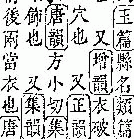 玉篇縣名類篇
又增韻衣被
穴也 又正韻
唐韻方小切正
飾也 又集韻
後兩當衣也唐